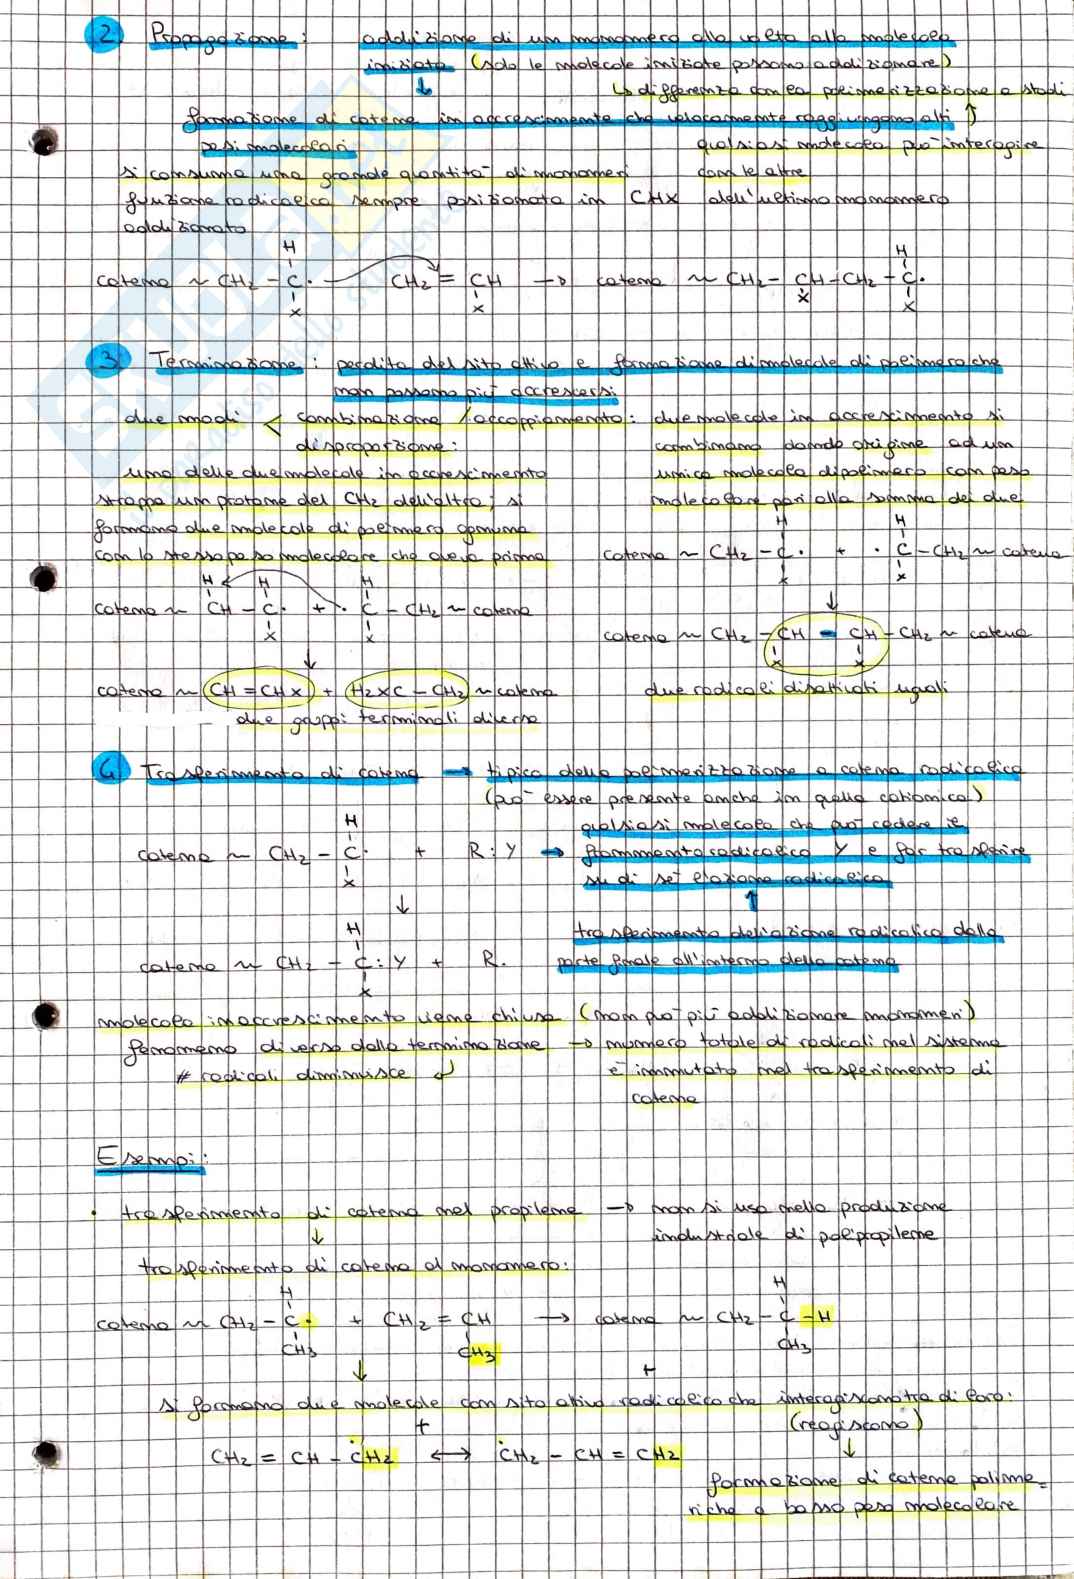 2) Propagazione: addizione di un monomero alla volta alla molecola
iniziata (solo le molecole iniziate possono addizionare)
↓
↳ differenza con la polimerizzazione a stadi
formazione di catene in accrescimento che velocemente raggiungono alti
pesi molecolari
↑ qualsiasi molecola può interagire
con le altre
si consuma una grande quantità di monomeri
funzione radicalica sempre posizionata in CHX dell'ultimo monomero
addizionato
catena ~ CH2 - C· CH2 = CH → catena ~ CH2 - CH - CH2 - C·
H X X X H X
3) Terminazione: perdita del sito attivo e formazione di molecole di polimero che
non possono più accrescersi
due modi < combinazione / accoppiamento: due molecole in accrescimento si
combinano dando origine ad un
unica molecola di polimero con peso
molecolare pari alla somma dei due
disproporzione:
una delle due molecole in accrescimento
strappa un protone del CH2 dell'altra; si
formano due molecole di polimero ognuna
con lo stesso peso molecolare che aveva prima
H H
catena ~ CH2 - C· + ·C - CH2 ~ catena
X X
↓
catena ~ CH2 - CH - CH - CH2 ~ catena
X X
due radicali disattivati uguali
H H H
catena ~ CH - C· + ·C - CH2 ~ catena
X X
↓
catena ~ CH = CHX + H2XC - CH2 ~ catena
due gruppi terminali diversi
4) Trasferimento di catena → tipico della polimerizzazione a catena radicalica
(può essere presente anche in quella cationica)
H
catena ~ CH2 - C· + R:Y → qualsiasi molecola che può cedere il
X
frammento radicalico Y e far trasferire
su di sé l'azione radicalica
↓
↑
trasferimento dell'azione radicalica dalla
parte finale all'interno della catena
H
catena ~ CH2 - C:Y + R·
X
molecola in accrescimento viene chiusa (non può più addizionare monomeri)
fenomeno diverso dalla terminazione → numero totale di radicali nel sistema
# radicali diminuisce ↵ è immutato nel trasferimento di
catena
Esempi:
• trasferimento di catena nel propilene → non si usa nella produzione
industriale di polipropilene
↓
trasferimento di catena al monomero:
H H
catena ~ CH2 - C· + CH2 = CH → catena ~ CH2 - C - H
CH3 CH3 CH3
↓ +
si formano due molecole con sito attivo radicalico che interagiscono tra di loro:
+ (reagiscono)
CH2 = CH - ĊH2 ↔ ĊH2 - CH = CH2 ↓
formazione di catene polime=
riche a basso peso molecolare